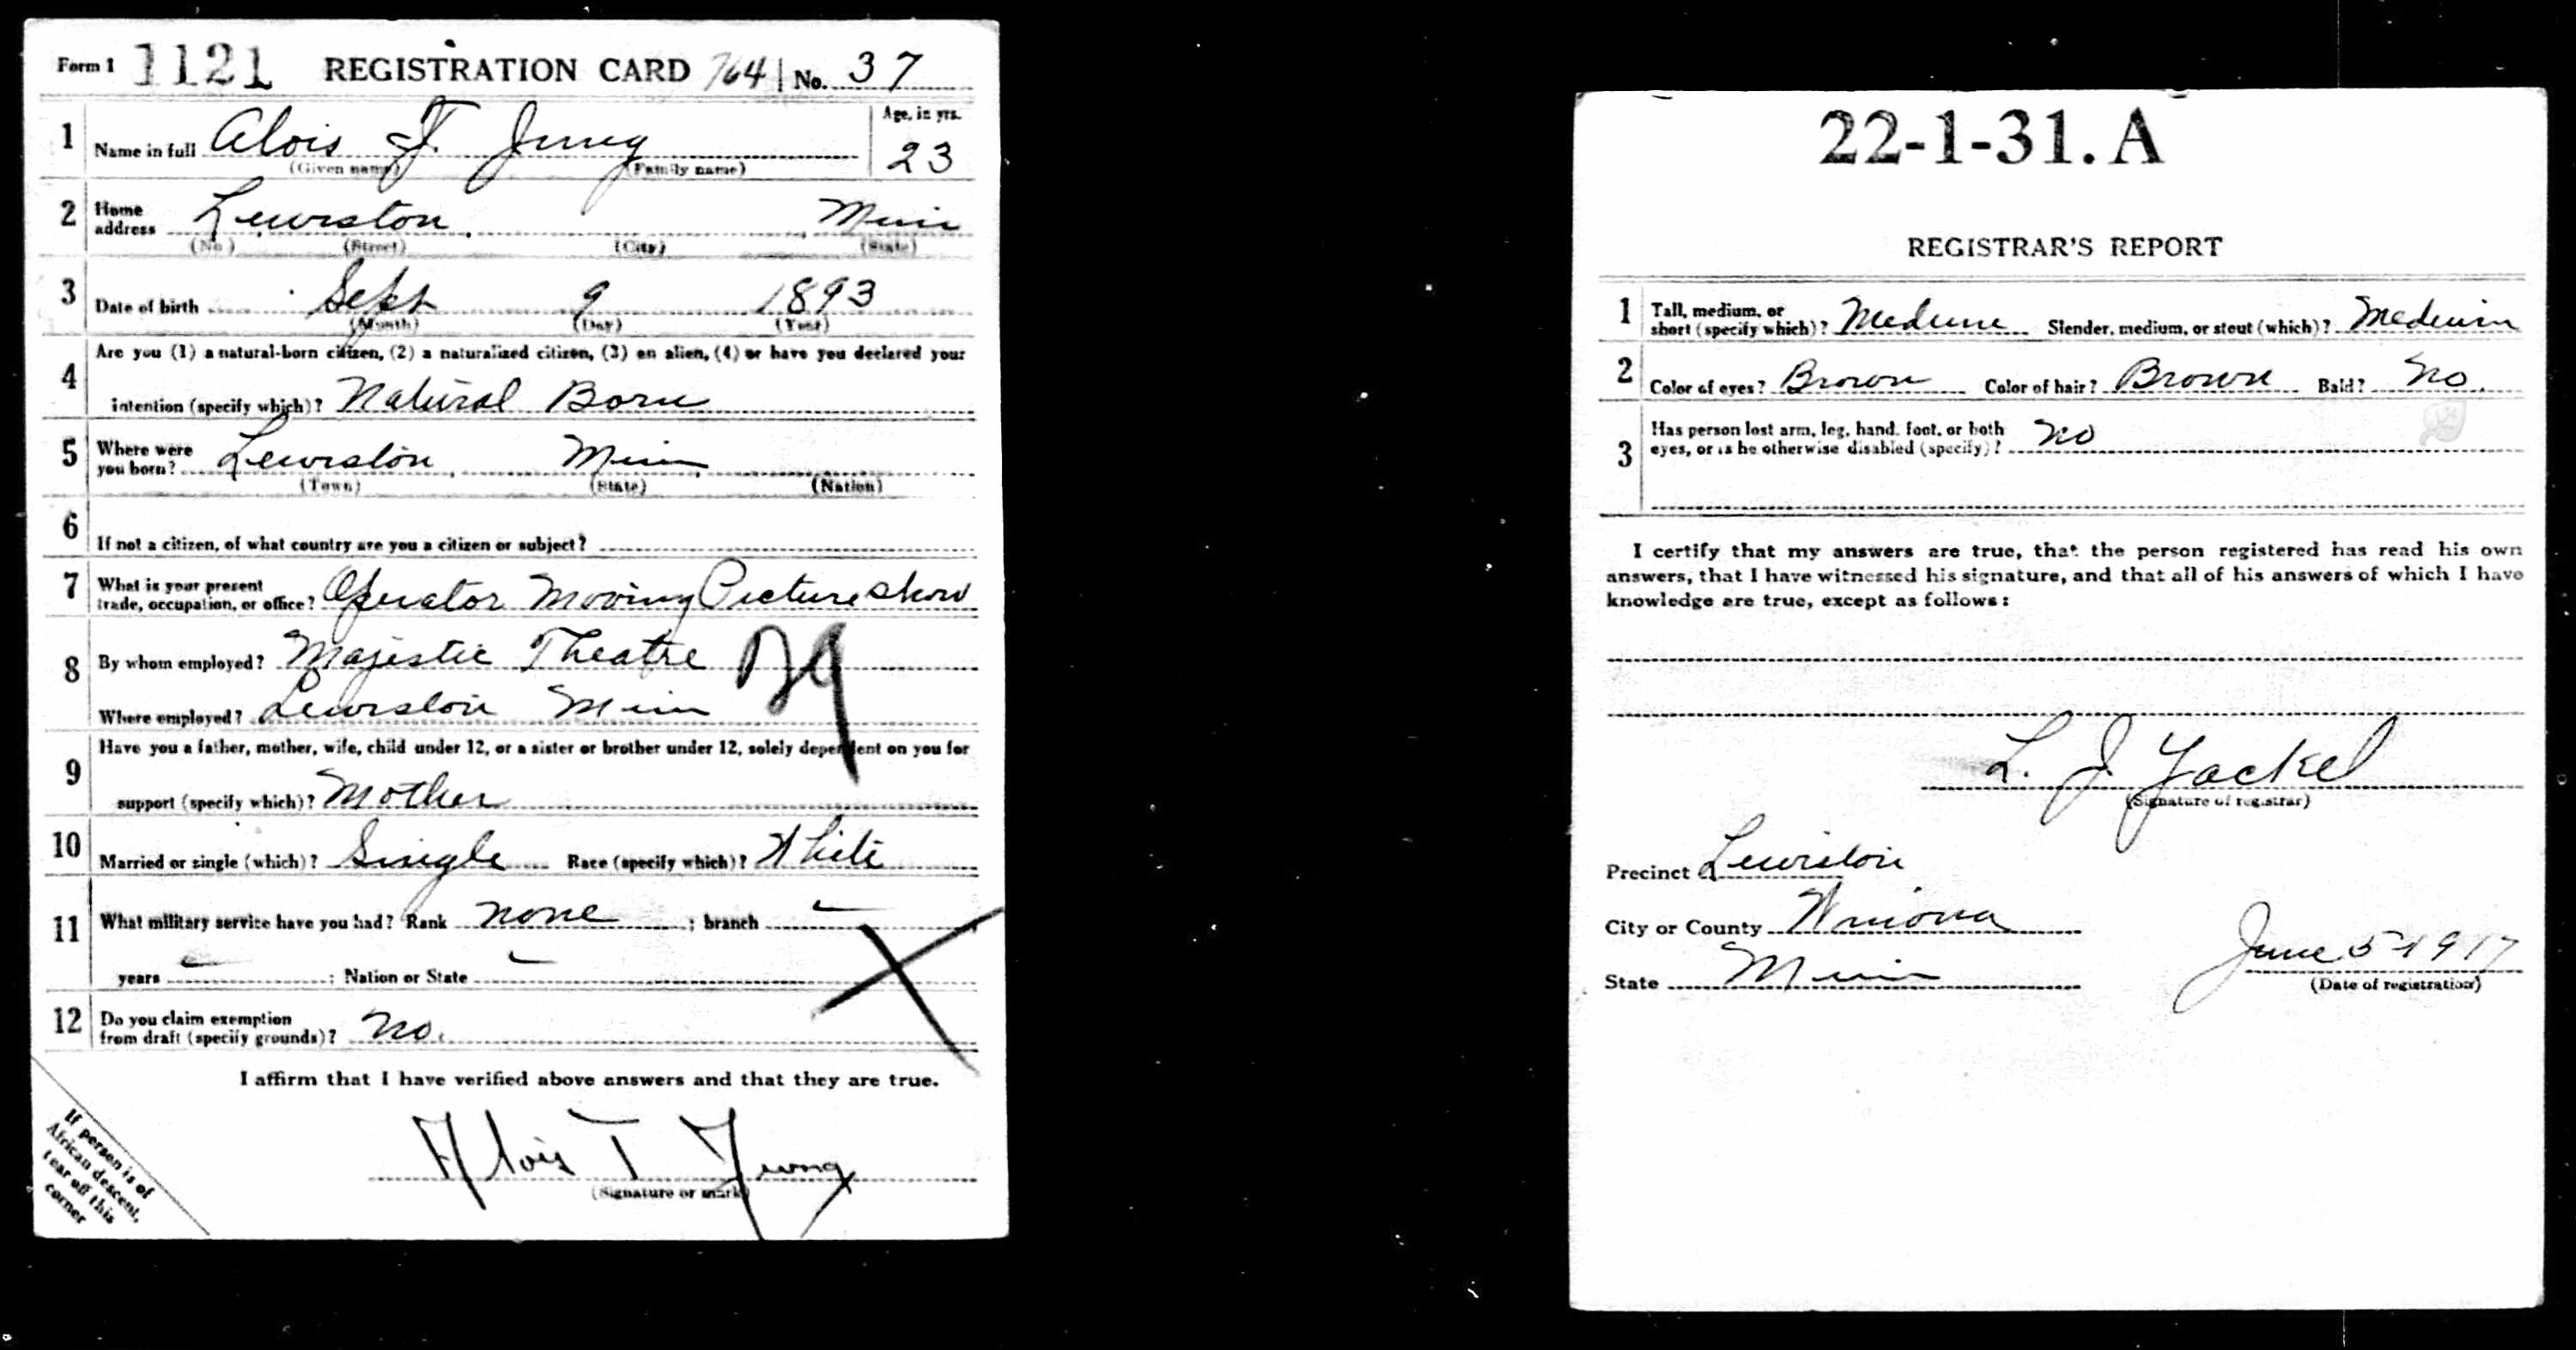 Form 1 1121 REGISTRATION CARD 764 No. 37
1 Name in full Alois T. Jung Age, in yrs. 23
(Given name) (Family name)
2 Home address Lewiston, Minn
(No.) (Street) (City) (State)
3 Date of birth Sept 9 1893
(Month) (Day) (Year)
4 Are you (1) a natural-born citizen, (2) a naturalized citizen, (3) an alien, (4) or have you declared your
intention (specify which)? Natural Born
5 Where were you born? Lewiston, Minn
(Town) (State) (Nation)
6 If not a citizen, of what country are you a citizen or subject?
7 What is your present trade, occupation, or office? Operator Moving Picture show
8 By whom employed? Majestic Theatre
Where employed? Lewiston Minn
9 Have you a father, mother, wife, child under 12, or a sister or brother under 12, solely dependent on you for
support (specify which)? Mother
10 Married or single (which)? Single Race (specify which)? White
11 What military service have you had? Rank none ; branch
years ; Nation or State
12 Do you claim exemption from draft (specify grounds)? No.
I affirm that I have verified above answers and that they are true.
Alois T Jung
(Signature or mark)
If person is of
African descent,
tear off this
corner
22-1-31. A
REGISTRAR'S REPORT
1 Tall, medium, or short (specify which)? Medium Slender, medium, or stout (which)? Medium
2 Color of eyes? Brown Color of hair? Brown Bald? No.
3 Has person lost arm, leg, hand, foot, or both eyes, or is he otherwise disabled (specify)? No
I certify that my answers are true, that the person registered has read his own
answers, that I have witnessed his signature, and that all of his answers of which I have
knowledge are true, except as follows:
L. J. Yackel
(Signature of registrar)
Precinct Lewiston
City or County Winona
State Minn
June 5-1917
(Date of registration)